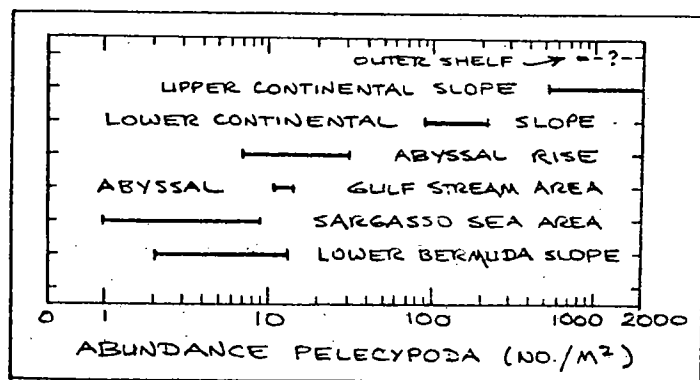 OUTER SHELF → - - ? - -
UPPER CONTINENTAL SLOPE
LOWER CONTINENTAL SLOPE
ABYSSAL RISE
ABYSSAL GULF STREAM AREA
SARGASSO SEA AREA
LOWER BERMUDA SLOPE
0 1 10 100 1000 2000
ABUNDANCE PELECYPODA (NO./M²)